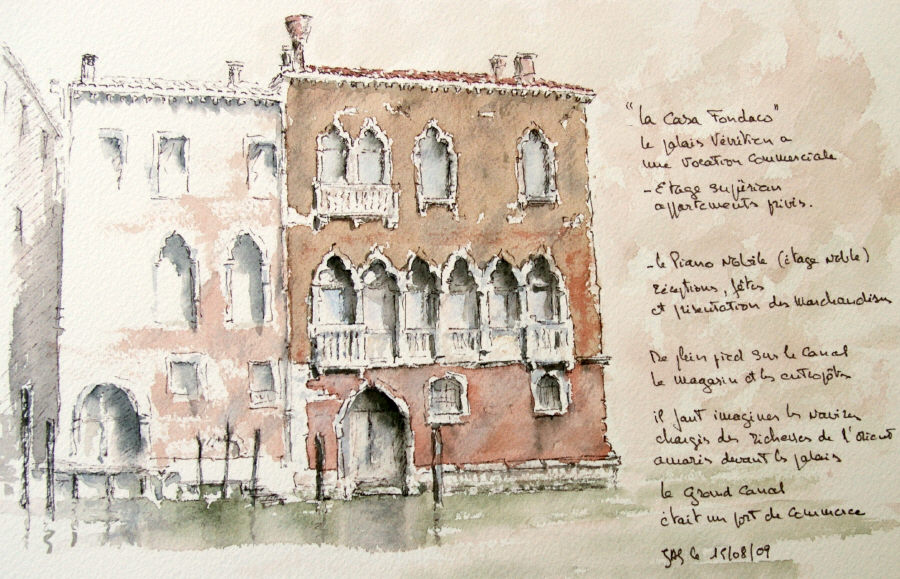 "La Casa Fondaco"
le palais Vénitien a
une vocation Commerciale
- Etage supérieur
appartements privés.
- le Piano Nobile (étage Noble)
réceptions, fêtes
et présentation des Marchandises
De plein pied sur le Canal
le magasin et les entrepôts
il faut imaginer les navires
chargés des richesses de l'Orient
amarrés devant les palais
le Grand Canal
était un port de Commerce
le 15/08/09